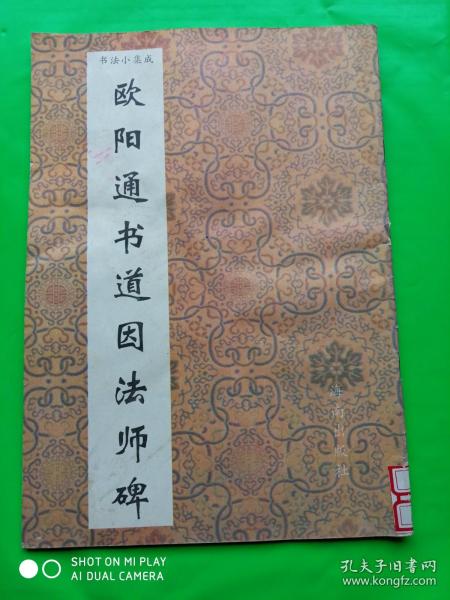 书法小集成
欧阳通书道因法师碑
海南出版社
SHOT ON MI PLAY
AI DUAL CAMERA
孔夫子旧书网
www.kongfz.com